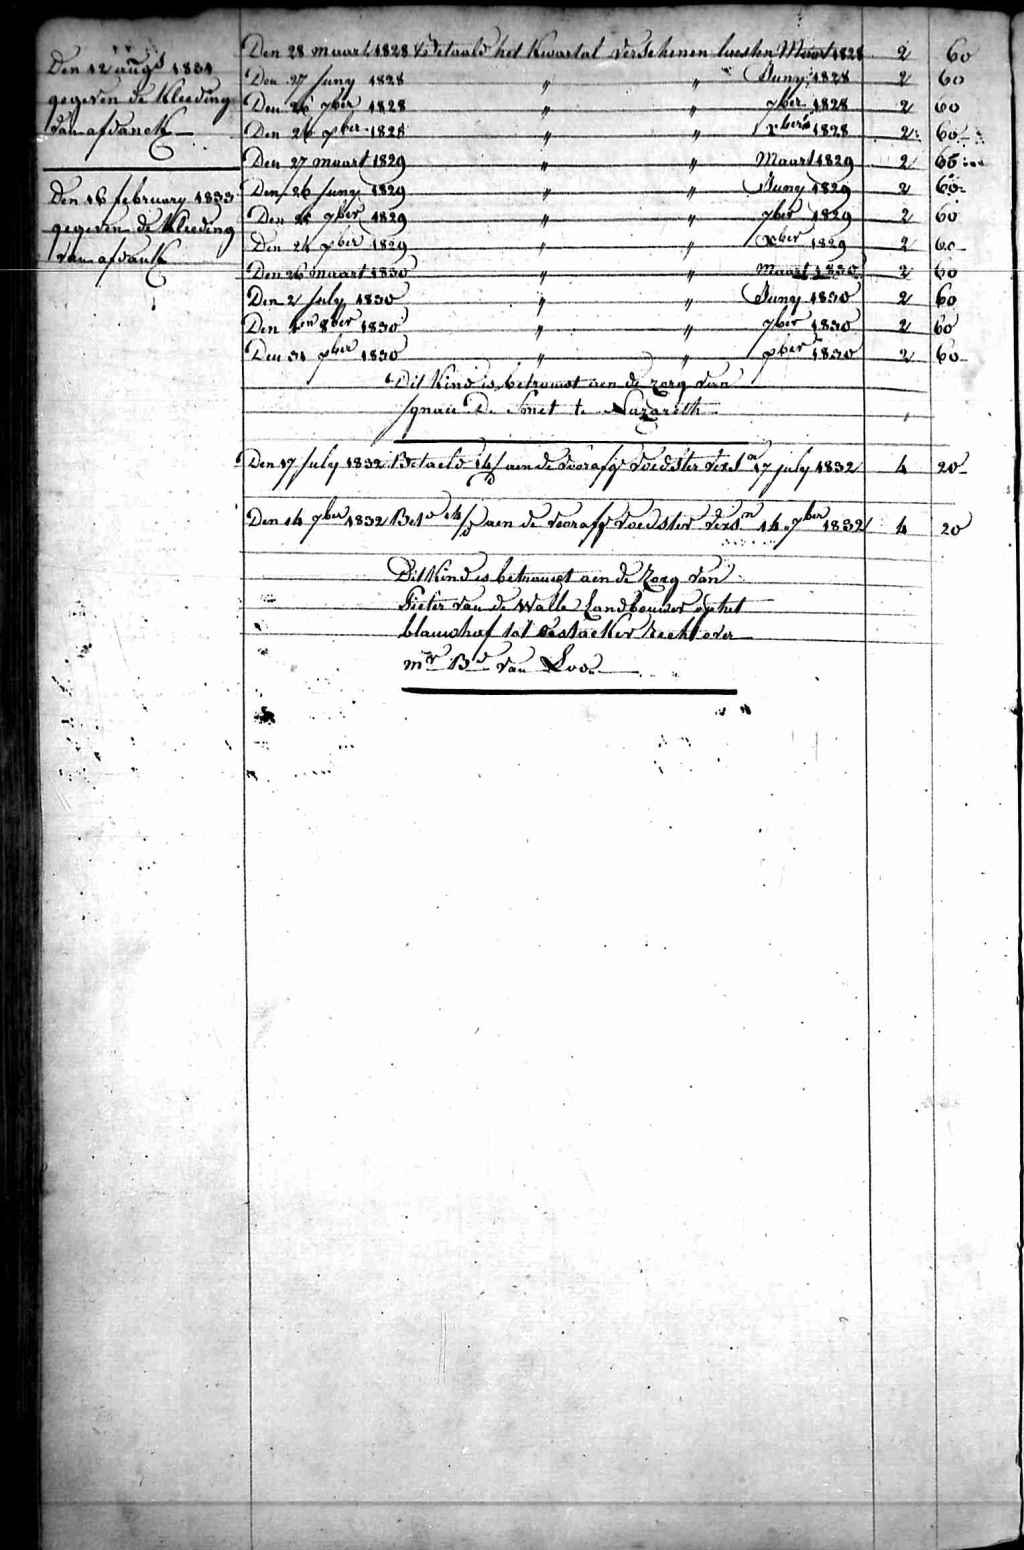 Den 12 augs 1831
gegeven de Kleeding
van afdanck
Den 16 february 1833
gegeven de Kleeding
van afdanck
Den 28 maart 1828 Betaald het Kwartal verschenen luesten Maart 1828 2 60
Den 27 Juny 1828 " " Juny 1828 2 60
Den 26 7ber 1828 " " 7ber 1828 2 60
Den 24 xber 1828 " " xber 1828 2 60
Den 27 maart 1829 " " Maart 1829 2 60
Den 26 Juny 1829 " " Juny 1829 2 60
Den 7ber 1829 " " 7ber 1829 2 60
Den 24 xber 1829 " " xber 1829 2 60
Den 26 maart 1830 " " Maart 1830 2 60
Den 2 July 1830 " " Juny 1830 2 60
Den 1en 8ber 1830 " " 7ber 1830 2 60
Den 31 xber 1830 " " xber 1830 2 60
Dit Kind is betrouwt aen de zorg van
Ignace De Smet te Nazareth
Den 17 July 1832 Betaeld aen de voorafge voedster 17 july 1832 4 20
Den 14 7ber 1832 aen de voorafge voedster 14 7ber 1832 4 20
Dit Kind is betrouwt aen de Zorg van
Pieter van de Walle Landbouwer op het
blauwhof tot oostacker recht over
mr Bd van Loo